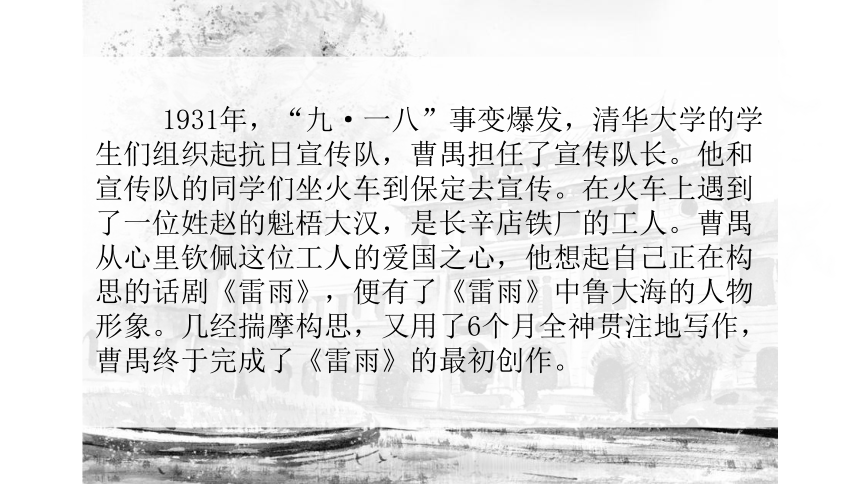 1931年，“九·一八”事变爆发，清华大学的学
生们组织起抗日宣传队，曹禺担任了宣传队长。他和
宣传队的同学们坐火车到保定去宣传。在火车上遇到
了一位姓赵的魁梧大汉，是长辛店铁厂的工人。曹禺
从心里钦佩这位工人的爱国之心，他想起自己正在构
思的话剧《雷雨》，便有了《雷雨》中鲁大海的人物
形象。几经揣摩构思，又用了6个月全神贯注地写作，
曹禺终于完成了《雷雨》的最初创作。